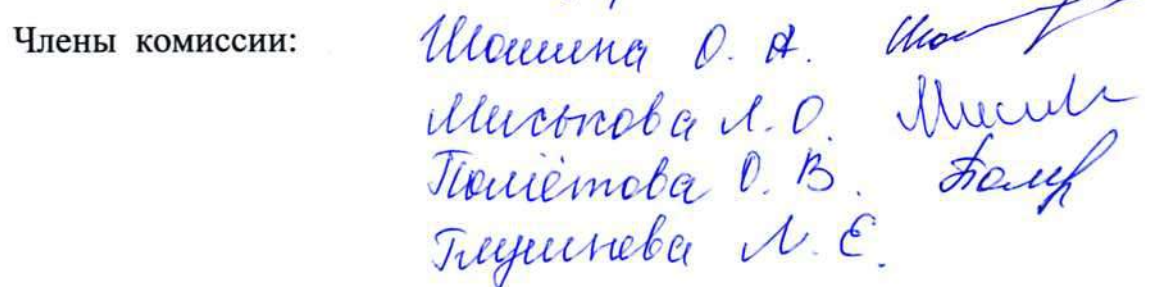 Члены комиссии: Шашина О. А.
Миськова Л. О.
Полётова О. В.
Глушнева Л. Е.